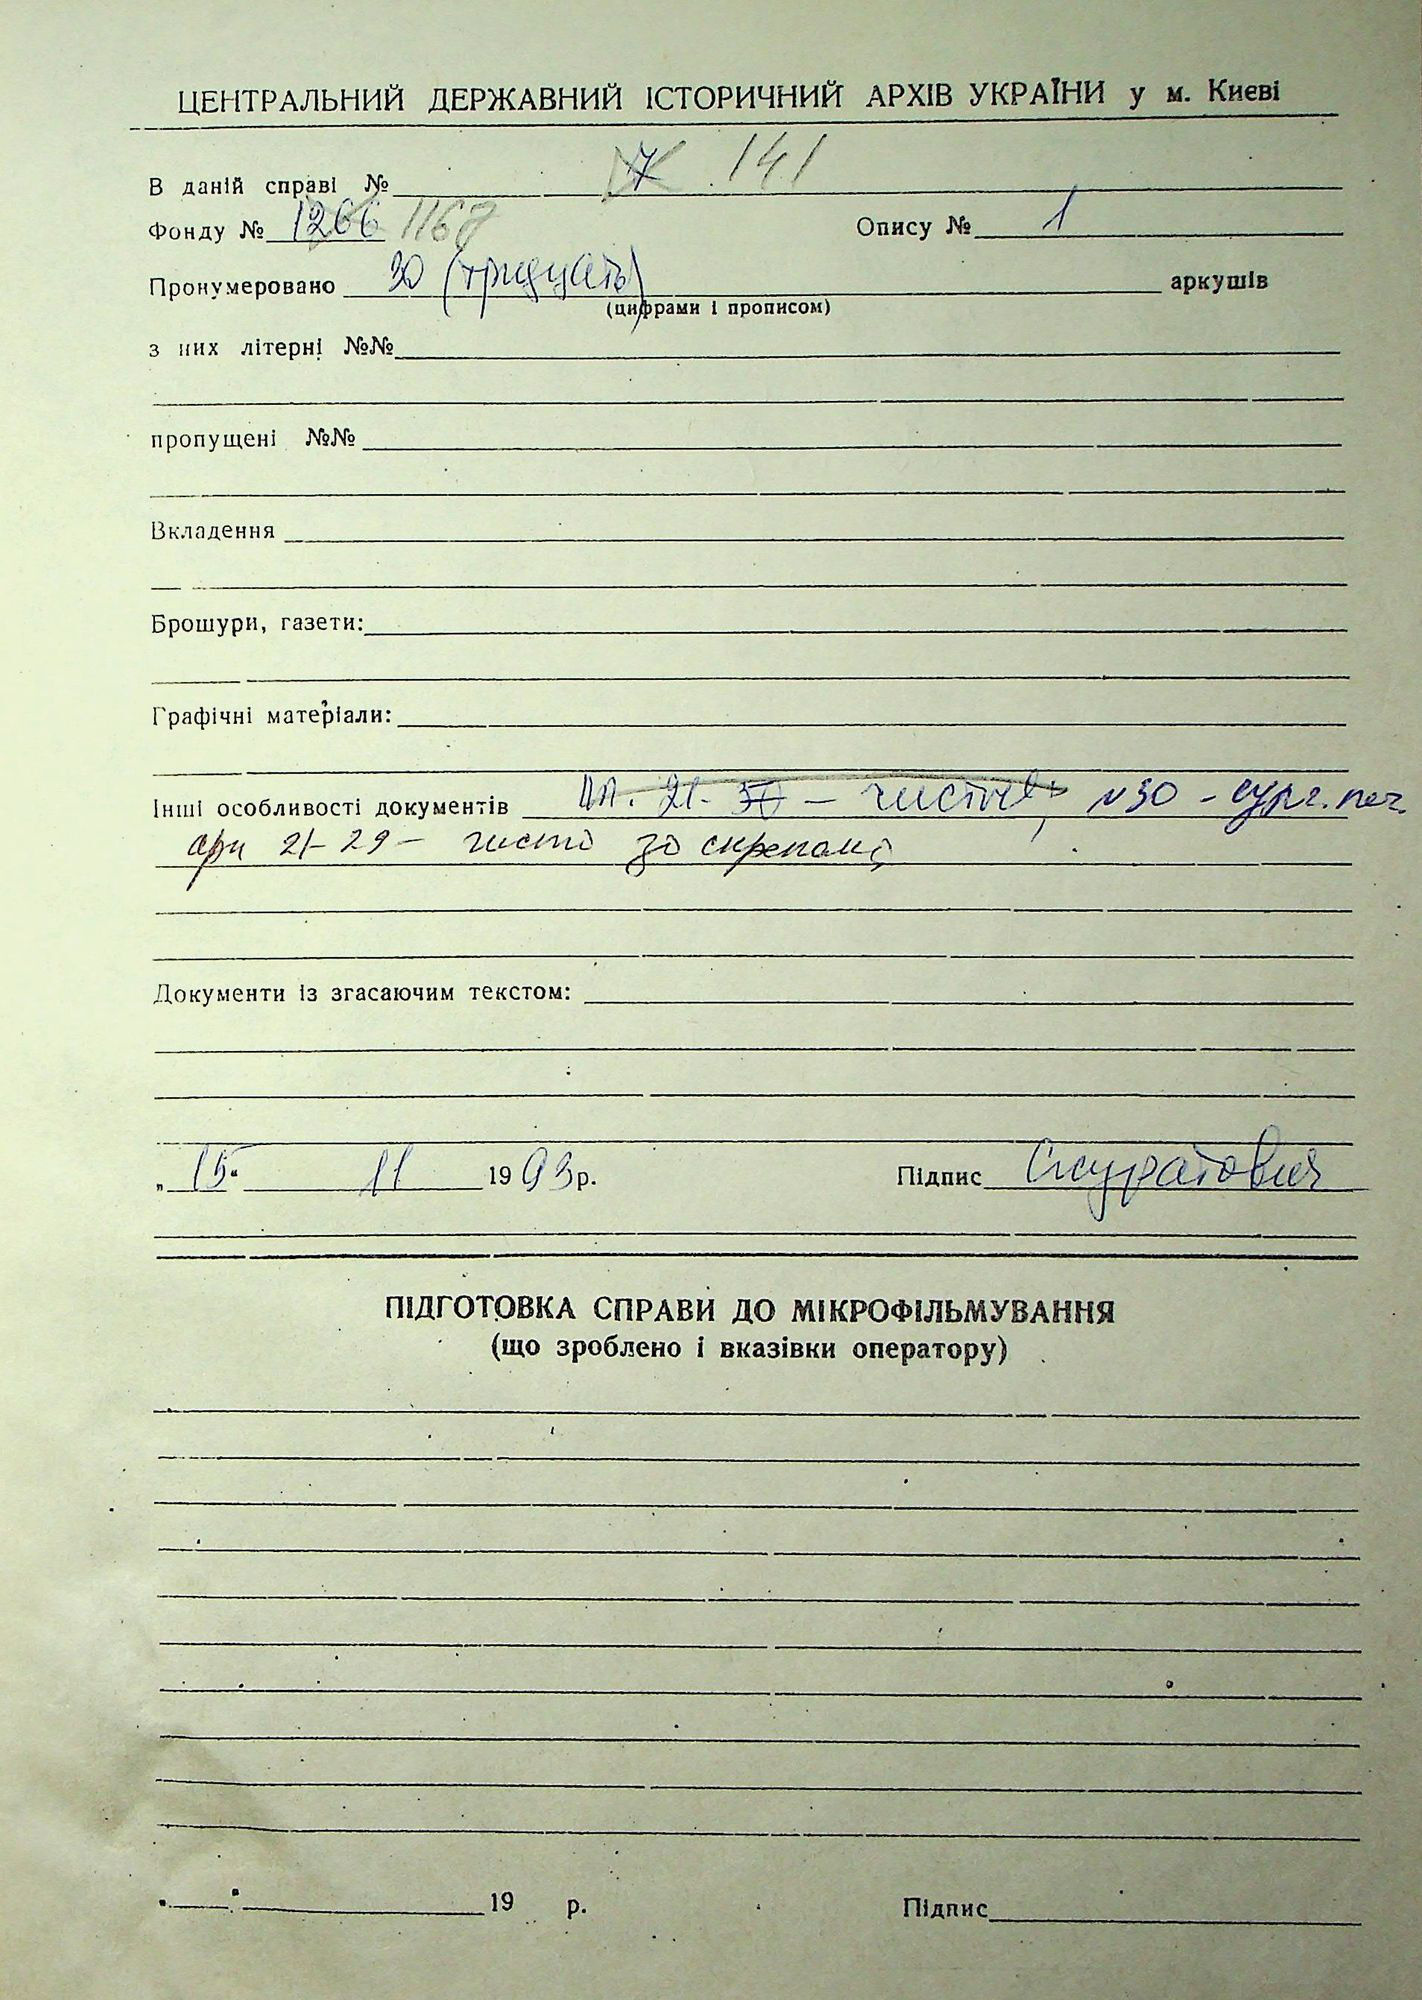 ЦЕНТРАЛЬНИЙ ДЕРЖАВНИЙ ІСТОРИЧНИЙ АРХІВ УКРАЇНИ у м. Києві
В даній справі № 7 141
Фонду № 1266 1167 Опису № 1
Пронумеровано 30 (тридцать) аркушів
(цифрами і прописом)
з них літерні №№
пропущені №№
Вкладення
Брошури, газети:
Графічні матеріали:
Інші особливості документів 21-30 – чисті, 30 - сург. печ.
арк 21-29 - чисто за скрепами
Документи із згасаючим текстом:
„15“ 11 1993р. Підпис Скуратович
ПІДГОТОВКА СПРАВИ ДО МІКРОФІЛЬМУВАННЯ
(що зроблено і вказівки оператору)
19 р. Підпис